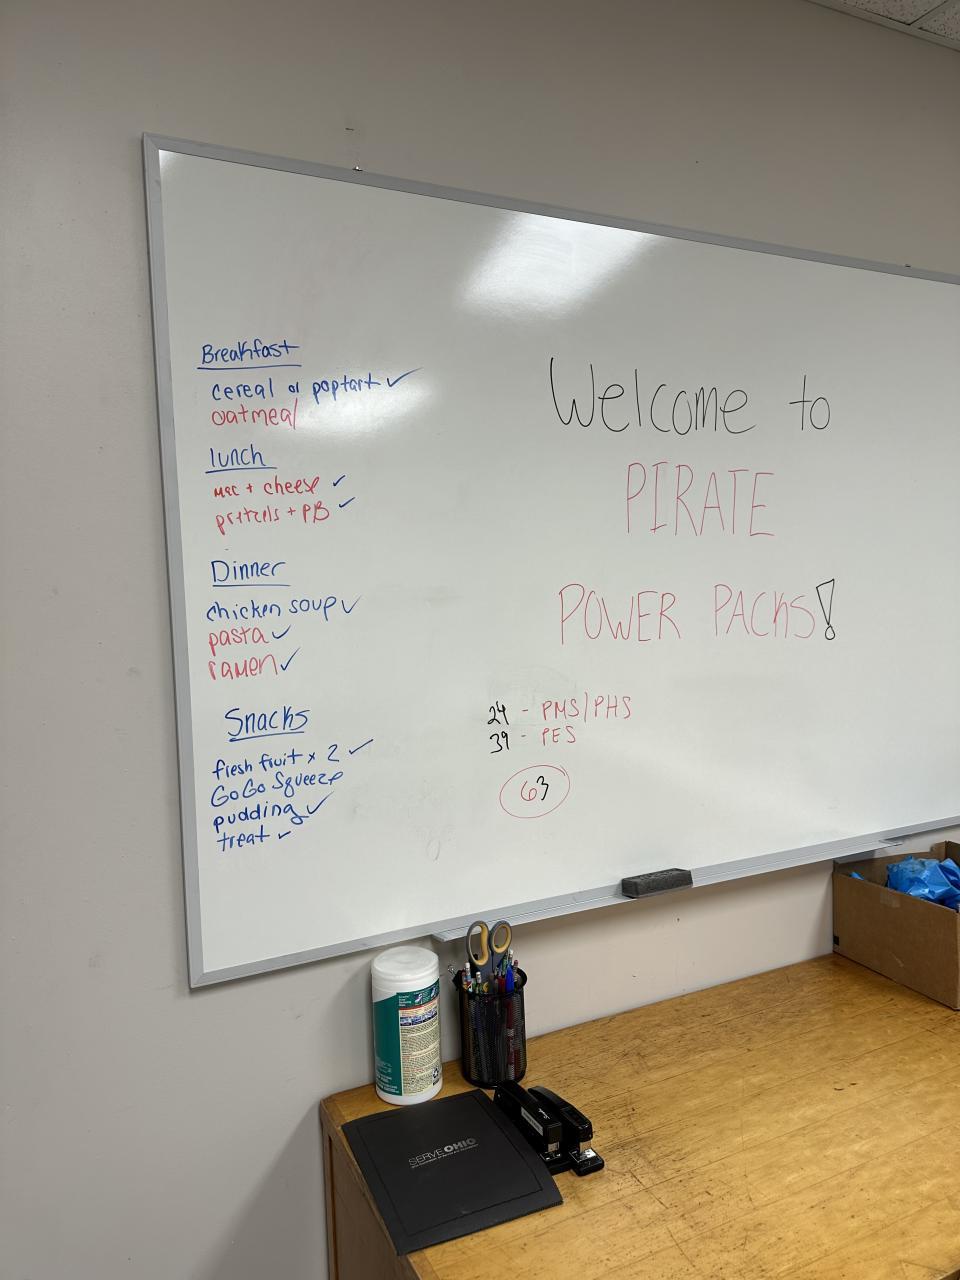 Breakfast
cereal or poptart ✓
oatmeal
lunch
mac + cheese ✓
pretzels + PB ✓
Dinner
chicken soup ✓
pasta ✓
ramen ✓
Snacks
fresh fruit x 2 ✓
GoGo Squeeze
pudding ✓
treat ✓
Welcome to
PIRATE
POWER PACKS!
24 - PMS/PHS
39 - PES
63
SERVEOHIO